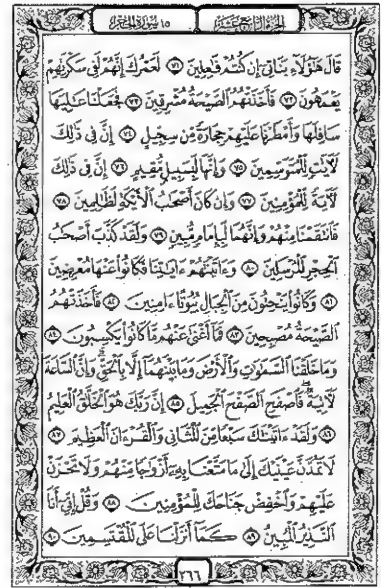 الجزء الرابع عشر ١٥ سورة الحجر
قَالَ هَٰٓؤُلَآءِ بَنَاتِىٓ إِن كُنتُمْ فَٰعِلِينَ ٧١ لَعَمْرُكَ إِنَّهُمْ لَفِى سَكْرَتِهِمْ
يَعْمَهُونَ ٧٢ فَأَخَذَتْهُمُ ٱلصَّيْحَةُ مُشْرِقِينَ ٧٣ فَجَعَلْنَا عَٰلِيَهَا
سَافِلَهَا وَأَمْطَرْنَا عَلَيْهِمْ حِجَارَةً مِّن سِجِّيلٍ ٧٤ إِنَّ فِى ذَٰلِكَ
لَءَايَٰتٍ لِّلْمُتَوَسِّمِينَ ٧٥ وَإِنَّهَا لَبِسَبِيلٍ مُّقِيمٍ ٧٦ إِنَّ فِى ذَٰلِكَ
لَءَايَةً لِّلْمُؤْمِنِينَ ٧٧ وَإِن كَانَ أَصْحَٰبُ ٱلْأَيْكَةِ لَظَٰلِمِينَ ٧٨
فَٱنتَقَمْنَا مِنْهُمْ وَإِنَّهُمَا لَبِإِمَامٍ مُّبِينٍ ٧٩ وَلَقَدْ كَذَّبَ أَصْحَٰبُ
ٱلْحِجْرِ ٱلْمُرْسَلِينَ ٨٠ وَءَاتَيْنَٰهُمْ ءَايَٰتِنَا فَكَانُوا۟ عَنْهَا مُعْرِضِينَ
٨١ وَكَانُوا۟ يَنْحِتُونَ مِنَ ٱلْجِبَالِ بُيُوتًا ءَامِنِينَ ٨٢ فَأَخَذَتْهُمُ
ٱلصَّيْحَةُ مُصْبِحِينَ ٨٣ فَمَآ أَغْنَىٰ عَنْهُم مَّا كَانُوا۟ يَكْسِبُونَ ٨٤
وَمَا خَلَقْنَا ٱلسَّمَٰوَٰتِ وَٱلْأَرْضَ وَمَا بَيْنَهُمَآ إِلَّا بِٱلْحَقِّ ۗ وَإِنَّ ٱلسَّاعَةَ
لَءَاتِيَةٌ ۖ فَٱصْفَحِ ٱلصَّفْحَ ٱلْجَمِيلَ ٨٥ إِنَّ رَبَّكَ هُوَ ٱلْخَلَّٰقُ ٱلْعَلِيمُ
٨٦ وَلَقَدْ ءَاتَيْنَٰكَ سَبْعًا مِّنَ ٱلْمَثَانِى وَٱلْقُرْءَانَ ٱلْعَظِيمَ ٨٧
لَا تَمُدَّنَّ عَيْنَيْكَ إِلَىٰ مَا مَتَّعْنَا بِهِۦٓ أَزْوَٰجًا مِّنْهُمْ وَلَا تَحْزَنْ
عَلَيْهِمْ وَٱخْفِضْ جَنَاحَكَ لِلْمُؤْمِنِينَ ٨٨ وَقُلْ إِنِّىٓ أَنَا
ٱلنَّذِيرُ ٱلْمُبِينُ ٨٩ كَمَآ أَنزَلْنَا عَلَى ٱلْمُقْتَسِمِينَ ٩٠
٢٦٦